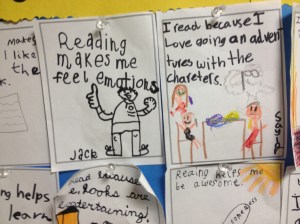 makes
I like
the
Reading
makes me
feel emotions
Jack
I read because I
Love going an adven
tures with the
chareters.
ing helps
learn
read because
e.books are
entertaining!
Reaing helps me
be awesome.